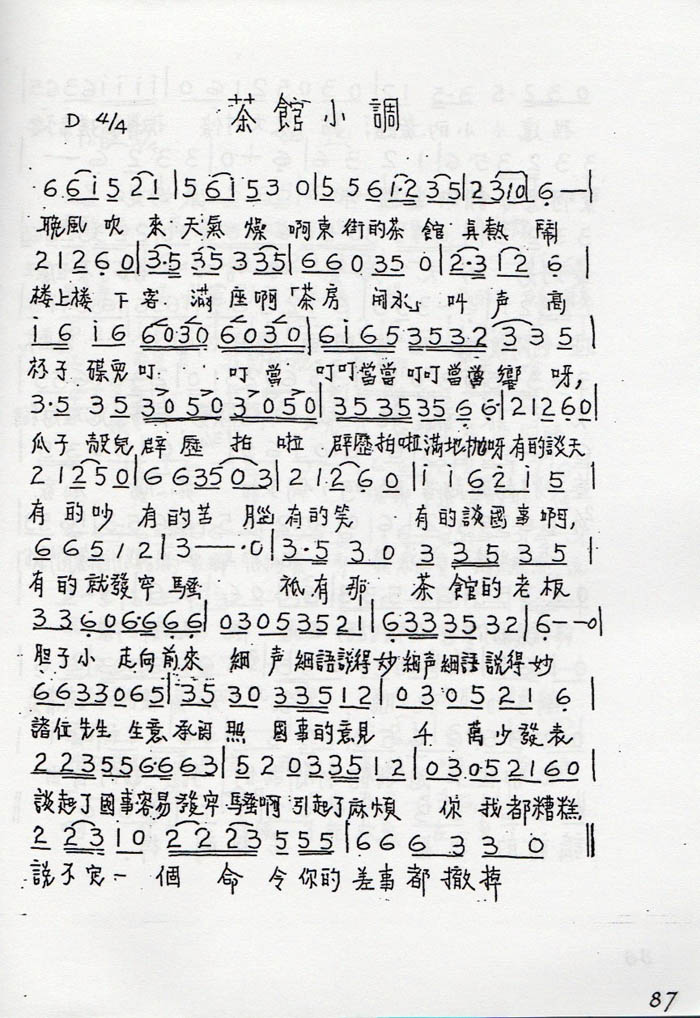 茶館小調
D 4/4
6 6 i 5 2 1 | 5 6 i 5 3 0 | 5 5 6 1·2 3 5 | 2 3 1 0 | 6 — — |
晚風吹來天氣燥啊東街的茶館真熱鬧
2 1 2 6 0 | 3·5 3 5 3 3 5 | 6 6 0 3 5 0 | 2·3 1 2 6 |
楼上楼下客滿座啊「茶房開水」叫声高
i 6 i 6 6 0 3 0 6 0 3 0 | 6 i 6 5 3 5 3 2 3 3 5 |
杯子碟兒叮叮當叮叮當當叮叮當當響呀,
3·5 3 5 3 0 5 0 3 0 5 0 | 3 5 3 5 3 5 6 6· | 2 1 2 6 0 |
瓜子殼兒辟歷拍啦辟歷拍啦滿地抛呀有的談天
2 1 2 5 0 | 6 6 3 5 0 3 | 2 1·2 6 0 | i i 6 2 i 5 |
有的吵有的苦腦有的笑有的談國事啊,
6 6 5 1 2 | 3 — — ·0 | 3·5 3 0 3 3 5 3 5 |
有的就發牢騷祇有那茶館的老板
3 3 6 0 6·6 6 6 | 0 3 0 5 3 5 2 1 | 6 3 3 3 5 3 2 | 6 — — 0 |
胆子小走向前來細声細語説得妙細声細語説得妙
6 6 3 3 0 6 5 | 3 5 3 0 3 3 5 1 2 | 0 3 0 5 2 1 6 |
諸位先生生意承関照國事的意見千萬少發表
2 2 3 5 5 6·6 6 3 | 5 2 0 3 3 5 1 2 | 0 3·0 5 2 1 6 0 |
談起了國事容易發牢騷啊引起了麻煩你我都糟糕,
2 2 3 1 0 2 2 2 3 5 5 5 | 6 6 6 3 3 0 ‖
説不定一個命令你的差事都撤掉
87